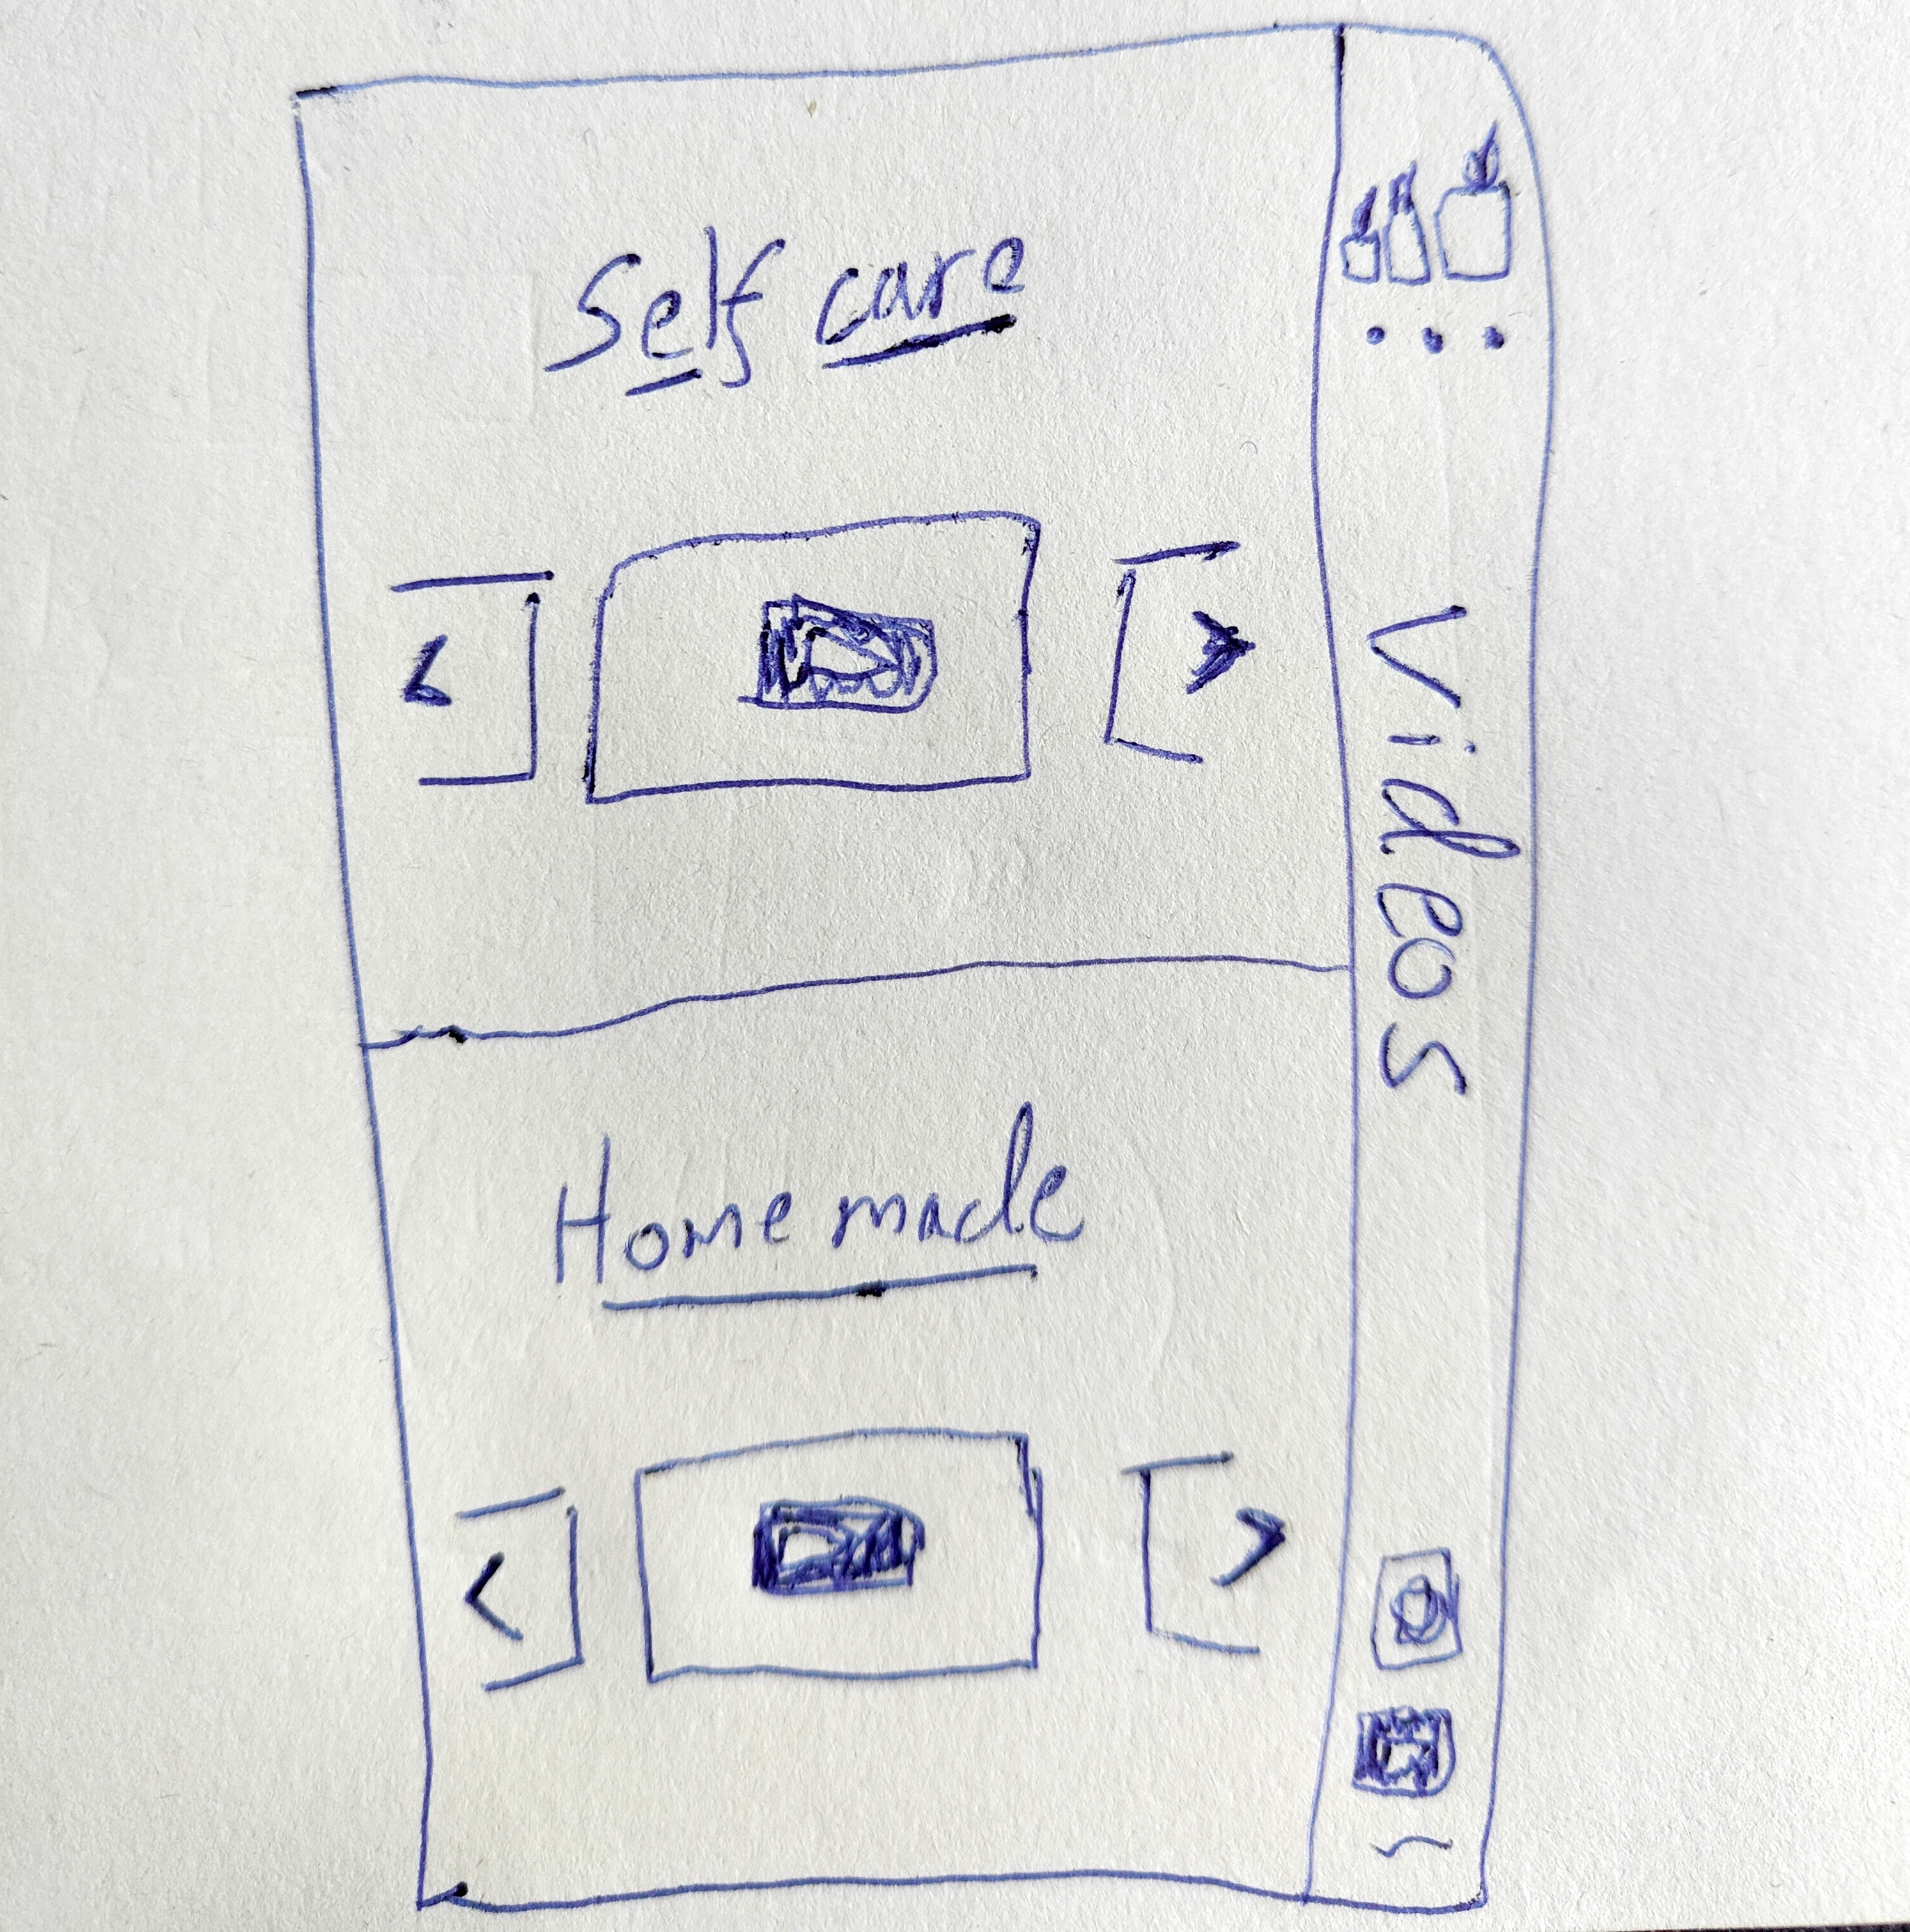 Self care
Videos
Home made